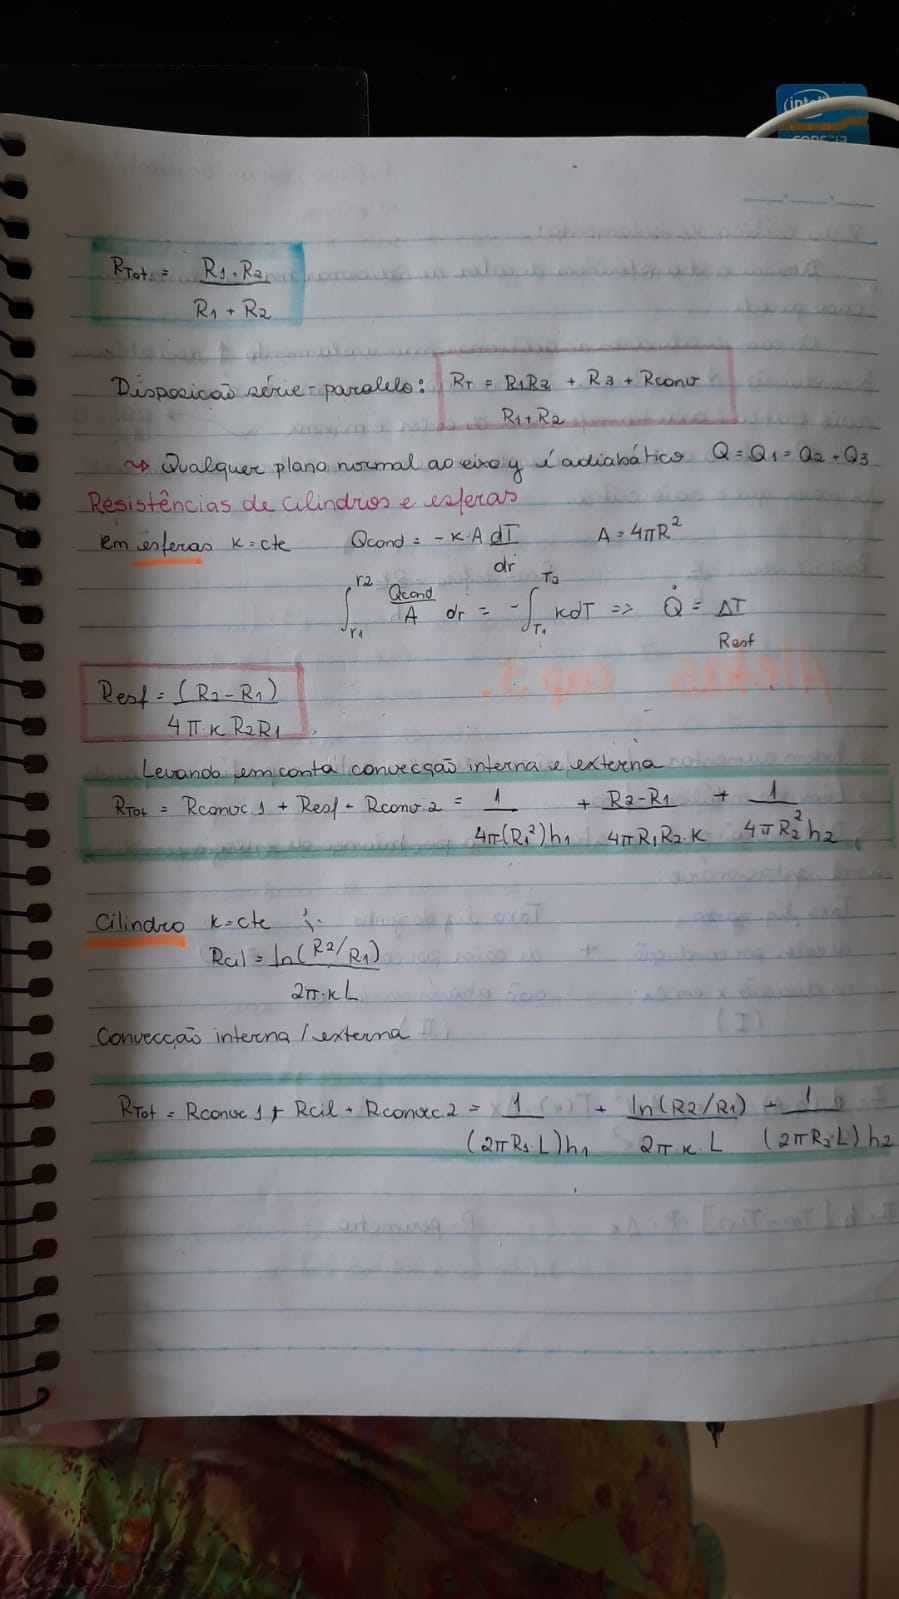 intel
CORE i3
RTot = R1.R2
R1 + R2
Disposição série-paralelo: RT = R1R2 + R3 + Rconv
R1+R2
~> Qualquer plano normal ao eixo y é adiabático Q = Q1 = Q2 + Q3
Resistências de cilindros e esferas
em esferas k=cte Qcond = -k.A dT A = 4πR²
dr
∫r1 r2 Qcond/A dr = -∫T1 T2 kdT => Q̇ = ΔT
Resf
Resf = (R2-R1)
4π.k R2R1
Levando em conta convecção interna e externa
RTot = Rconvc.1 + Resf + Rconv.2 = 1 + R2-R1 + 1
4π(R1²)h1 4πR1R2.k 4πR2²h2
Cilindro k=cte
Rcil = ln(R2/R1)
2π.kL
Convecção interna/externa
RTot = Rconvc1+ Rcil + Rconvc2 = 1 + ln(R2/R1) + 1
(2πR1.L)h1 2π.k.L (2πR2L)h2